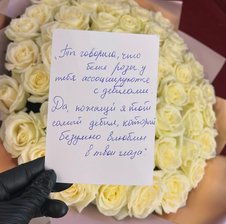 „Ты говорила, что
белые розы у
тебя ассоциируются
с дебилами
Да, пожалуй я тот
самый дебил, который
безумно влюблён
в твои глаза"